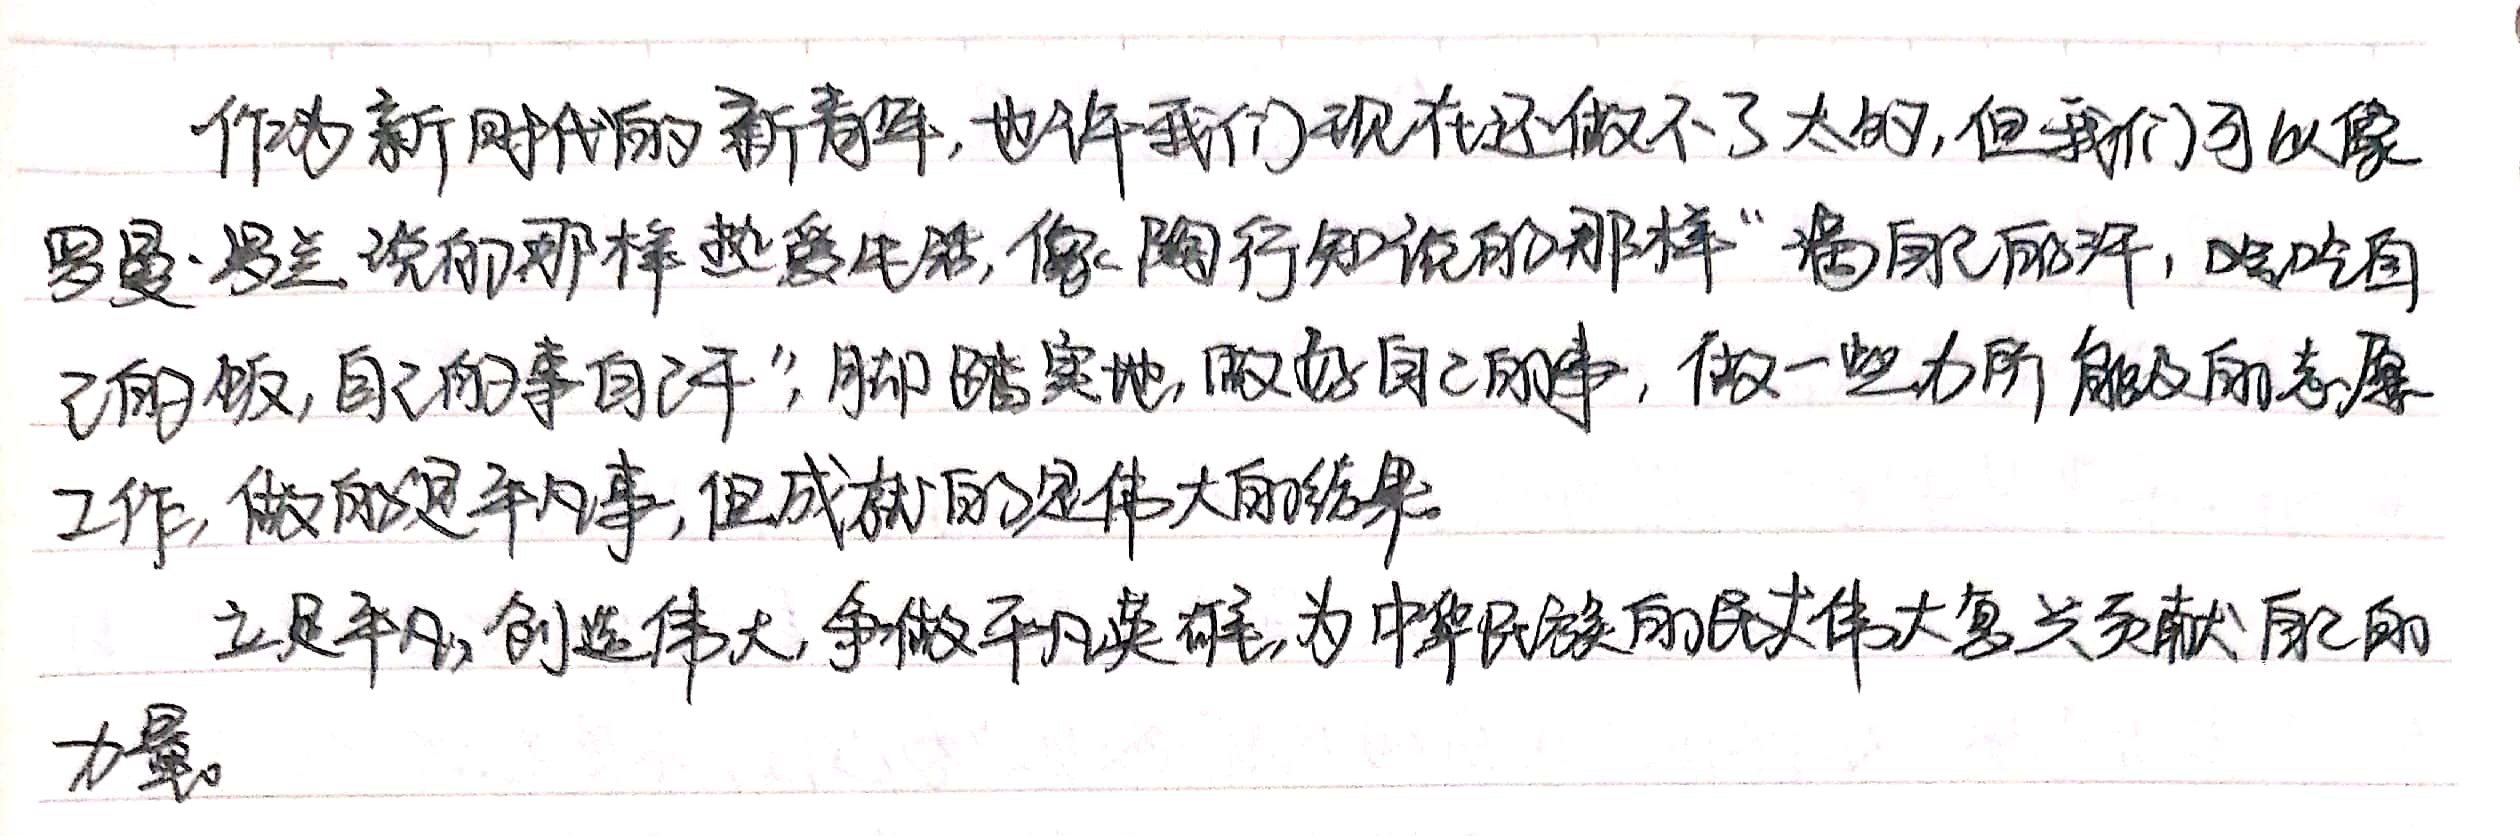 作为新时代的新青年，也许我们现在还做不了太的，但我们可以像
罗曼·罗兰说的那样热爱生活，像陶行知说的那样“滴自己的汗，吃自
己的饭，自己的事自己干”，脚踏实地，做好自己的事，做一些力所能及的志愿
工作，做的是平凡事，但成就的是伟大的结果。
立足平凡，创造伟大，争做平凡英雄，为中华民族的伟大复兴贡献自己的
力量。